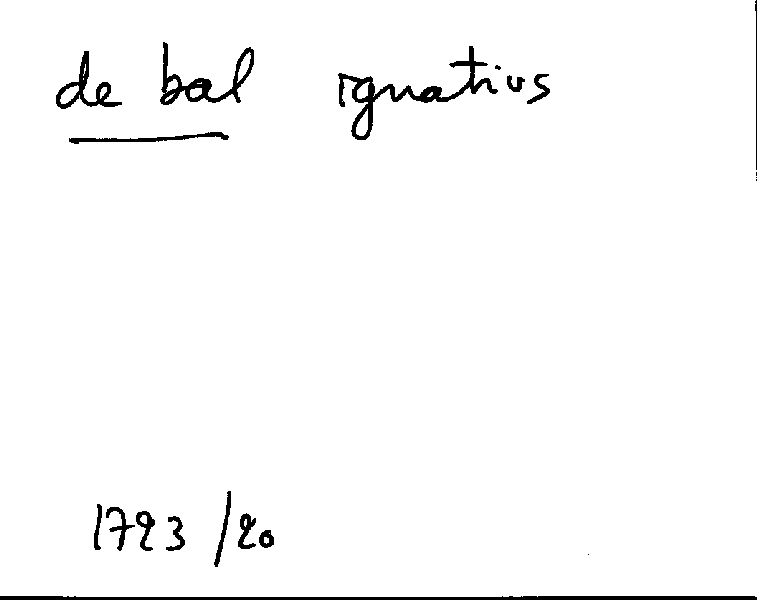 de bal ignatius
1723/20